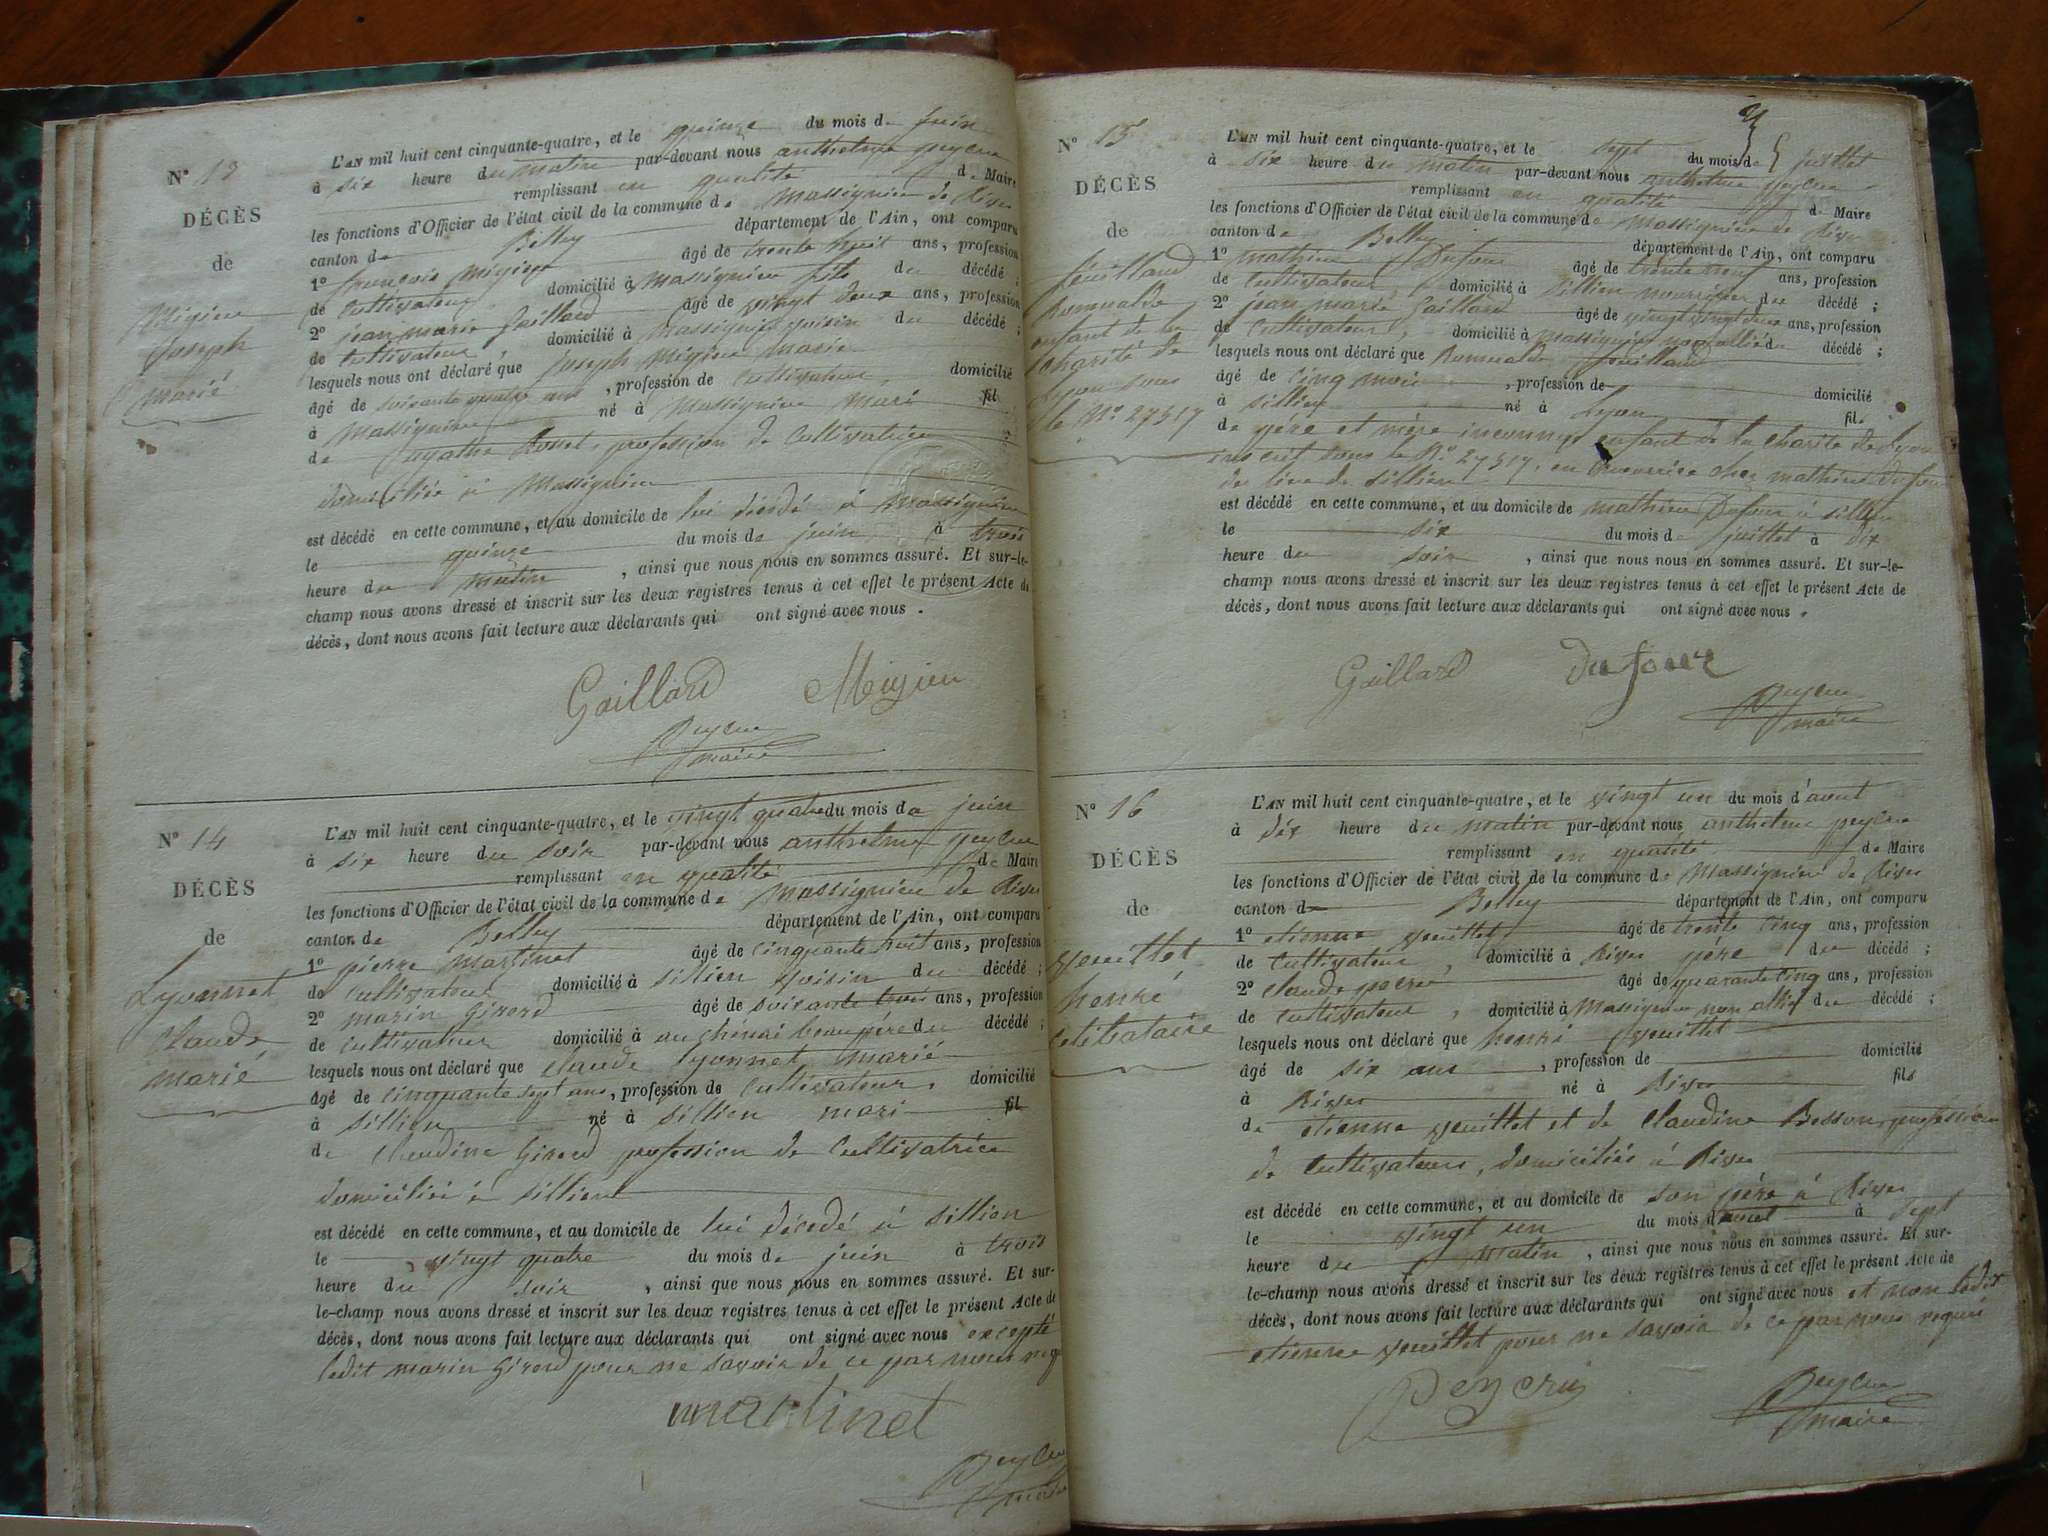 N° 13
DÉCÈS
de
Migieu
Joseph
Marié
L'AN mil huit cent cinquante-quatre, et le quinze du mois de juin
à six heure du matin par-devant nous anthelme peycru
remplissant en qualité de Maire
les fonctions d'Officier de l'état civil de la commune de Massignieu de Rives
canton de Belley département de l'Ain, ont comparu
1° françois Migieu âgé de trente huit ans, profession
de Cultivateur domicilié à Massignieu fils du décédé ;
2° jean marie Gaillard âgé de vingt deux ans, profession
de Cultivateur, domicilié à Massignieu voisin du décédé ;
lesquels nous ont déclaré que Joseph Migieu Marié
âgé de soixante ans, profession de Cultivateur, domicilié
à Massignieu né à Massignieu Mari fil
de agathe profession de Cultivatrice
domiciliée à Massignieu
est décédé en cette commune, et au domicile de lui décédé à Massignieu
le quinze du mois de juin à trois
heure du matin, ainsi que nous nous en sommes assuré. Et sur-le-
champ nous avons dressé et inscrit sur les deux registres tenus à cet effet le présent Acte de
décès, dont nous avons fait lecture aux déclarants qui ont signé avec nous.
Gaillard Migieu
Peycru
maire
N° 14
DÉCÈS
de
Lyonnet
Claude
marié
L'AN mil huit cent cinquante-quatre, et le vingt quatre du mois de juin
à six heure du soir par-devant nous anthelme peycru
remplissant en qualité de Maire
les fonctions d'Officier de l'état civil de la commune de Massignieu de Rives
canton de Belley département de l'Ain, ont comparu
1° pierre Martinet âgé de cinquante huit ans, profession
de Cultivateur domicilié à sillien voisin du décédé ;
2° marin Girord âgé de soixante trois ans, profession
de Cultivateur domicilié à beaupére du décédé ;
lesquels nous ont déclaré que Claude Lyonnet Marié
âgé de cinquante sept ans, profession de Cultivateur, domicilié
à sillien né à sillien mari fil
de Claudine Girord profession de Cultivatrice
domiciliée à sillien
est décédé en cette commune, et au domicile de lui décédé à sillien
le vingt quatre du mois de juin à trois
heure du soir, ainsi que nous nous en sommes assuré. Et sur-
le-champ nous avons dressé et inscrit sur les deux registres tenus à cet effet le présent Acte de
décès, dont nous avons fait lecture aux déclarants qui ont signé avec nous excepté
ledit marin Girord pour ne savoir de ce par nous
martinet
Peycru
maire
N° 15
DÉCÈS
de
feuilland
Romualde
enfant de la
charité de
Lyon sous
le N° 27317
L'AN mil huit cent cinquante-quatre, et le sept du mois de juillet
à six heure du matin par-devant nous anthelme peycru
remplissant en qualité de Maire
les fonctions d'Officier de l'état civil de la commune de Massignieu de Rives
canton de Belley département de l'Ain, ont comparu
1° mathieu Dufour âgé de trente neuf ans, profession
de Cultivateur, domicilié à Sillien nourricier du décédé ;
2° jean marie Gaillard âgé de vingt deux ans, profession
de Cultivateur, domicilié à Massignieu non allié du décédé ;
lesquels nous ont déclaré que Romualde feuilland
âgé de cinq mois, profession de domicilié
à sillien né à Lyon fils
de père et mère inconnus enfant de la charité de Lyon
inscrit sous le N° 27317, en chez mathieu Dufour
de sillien
est décédé en cette commune, et au domicile de mathieu Dufour à sillien
le six du mois de juillet à dix
heure du soir, ainsi que nous nous en sommes assuré. Et sur-le-
champ nous avons dressé et inscrit sur les deux registres tenus à cet effet le présent Acte de
décès, dont nous avons fait lecture aux déclarants qui ont signé avec nous.
Gaillard Dufour
Peycru
maire
N° 16
DÉCÈS
de
henri
Célibataire
L'AN mil huit cent cinquante-quatre, et le vingt un du mois d'aout
à dix heure du matin par-devant nous anthelme peycru
remplissant en qualité de Maire
les fonctions d'Officier de l'état civil de la commune de Massignieu de Rives
canton de Belley département de l'Ain, ont comparu
1° etienne âgé de trente cinq ans, profession
de Cultivateur, domicilié à Rives père du décédé ;
2° Claude âgé de quarante cinq ans, profession
de Cultivateur, domicilié à Massignieu non allié du décédé ;
lesquels nous ont déclaré que henri
âgé de six ans, profession de domicilié
à Rives né à Rives fils
de etienne et de Claudine Bosson, profession
de Cultivateurs, domiciliés à Rives
est décédé en cette commune, et au domicile de son père à Rives
le vingt un du mois d'aout à sept
heure du matin, ainsi que nous nous en sommes assuré. Et sur-
le-champ nous avons dressé et inscrit sur les deux registres tenus à cet effet le présent Acte de
décès, dont nous avons fait lecture aux déclarants qui ont signé avec nous et non ledit
etienne pour ne savoir de ce par nous requis
Peycru
Peycru
maire